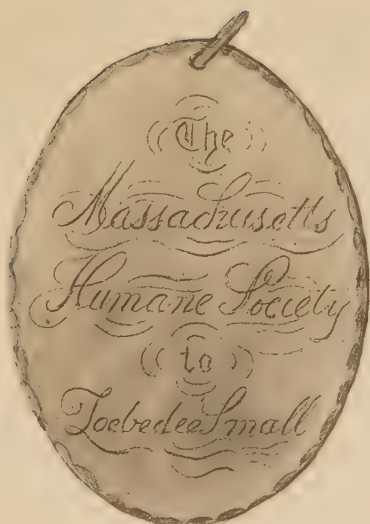 The
Massachusetts
Humane Society
to
Zoebedee Small